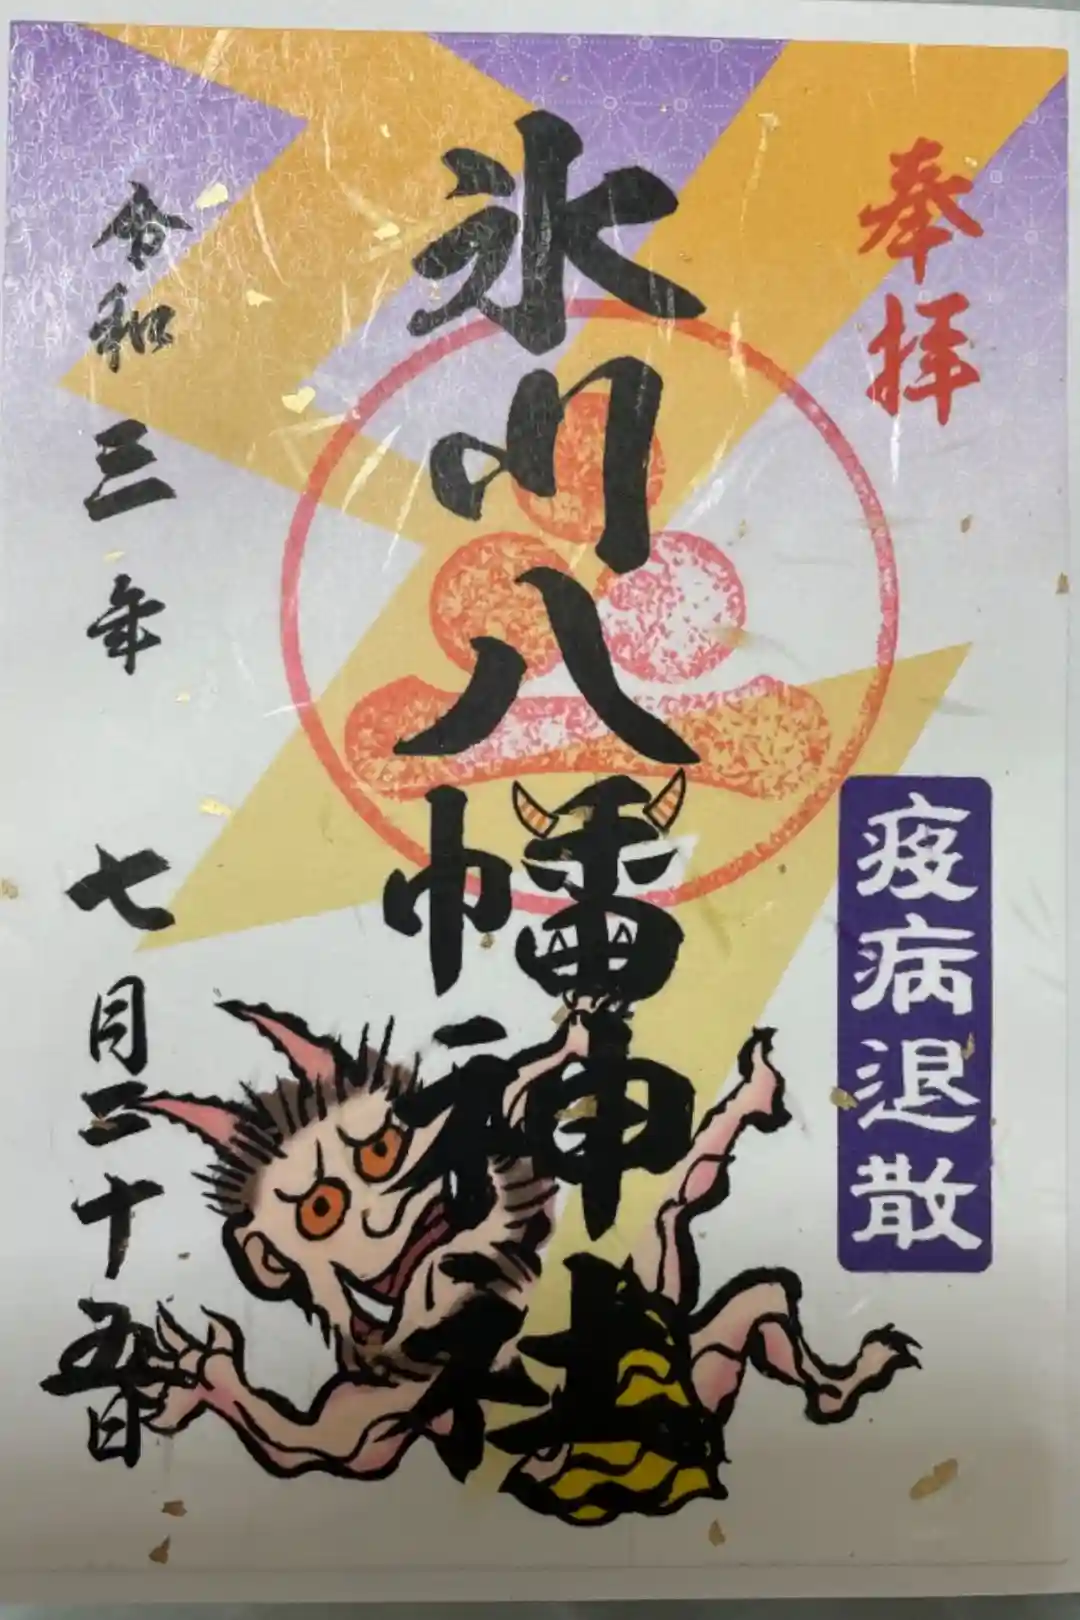 奉拝
疫病退散
氷川八幡神社
令和三年七月二十五日